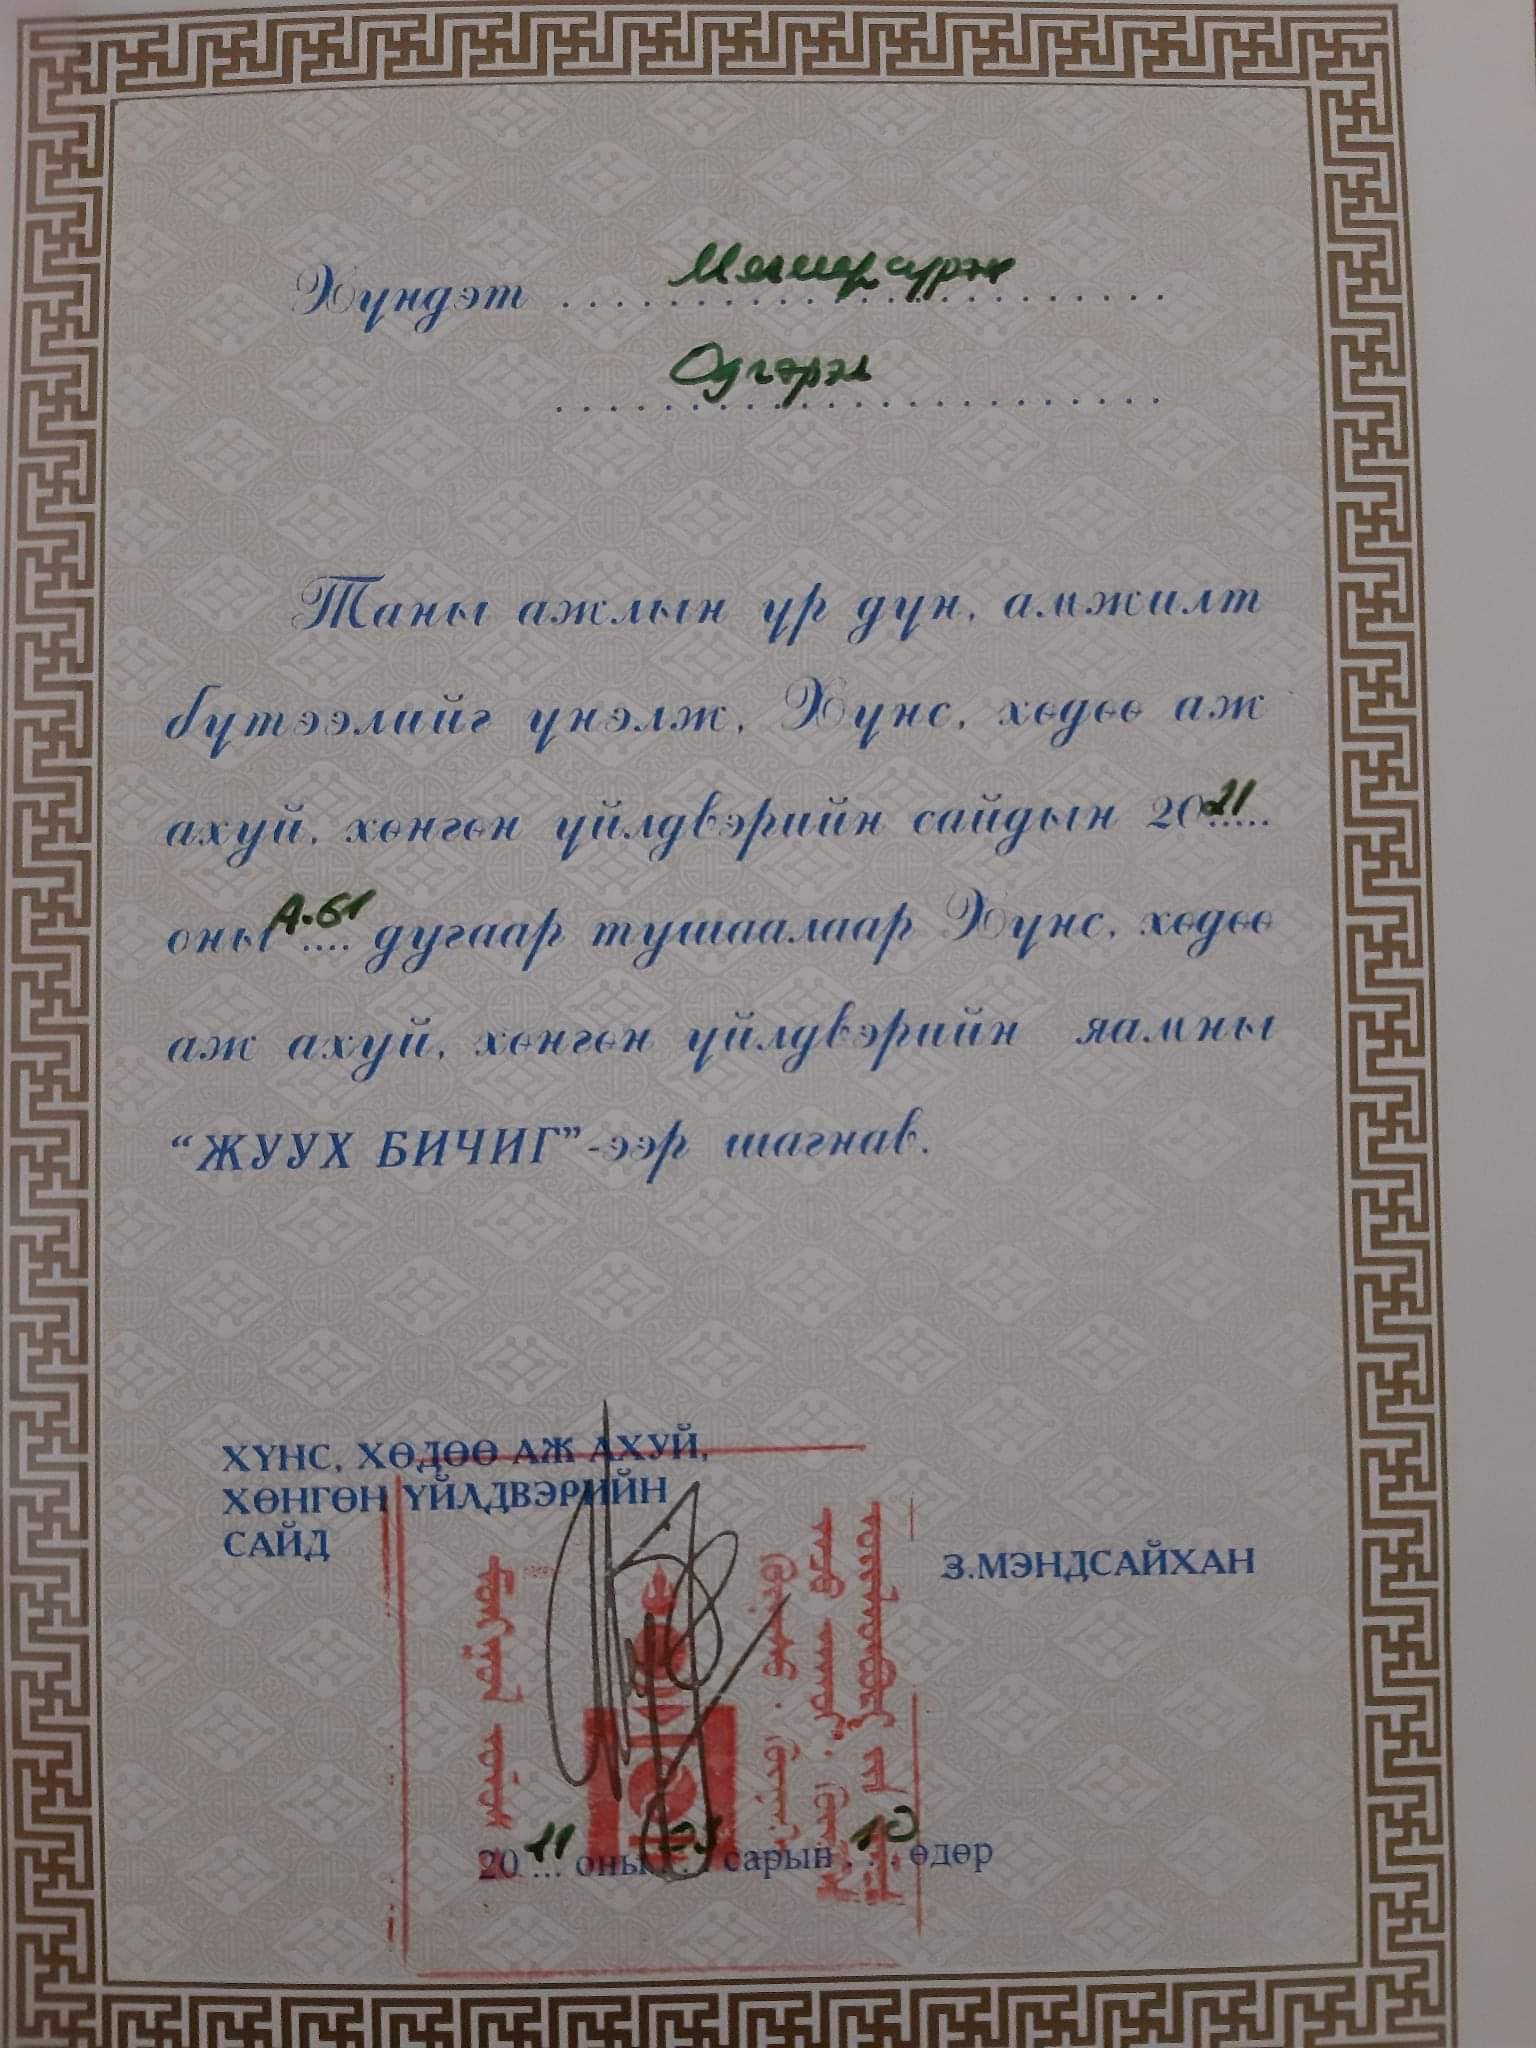 Хүндэт Мягмарсүрэн
Одгэрэл
Таны ажлын үр дүн, амжилт
бүтээлийг үнэлж, Хүнс, хөдөө аж
ахуй, хөнгөн үйлдвэрийн сайдын 2021
оны А-61 дугаар тушаалаар Хүнс, хөдөө
аж ахуй, хөнгөн үйлдвэрийн яамны
“ЖУУХ БИЧИГ”-ээр шагнав.
ХҮНС, ХӨДӨӨ АЖ АХУЙ,
ХӨНГӨН ҮЙЛДВЭРИЙН
САЙД
З.МЭНДСАЙХАН
2021 оны сарын 10 өдөр